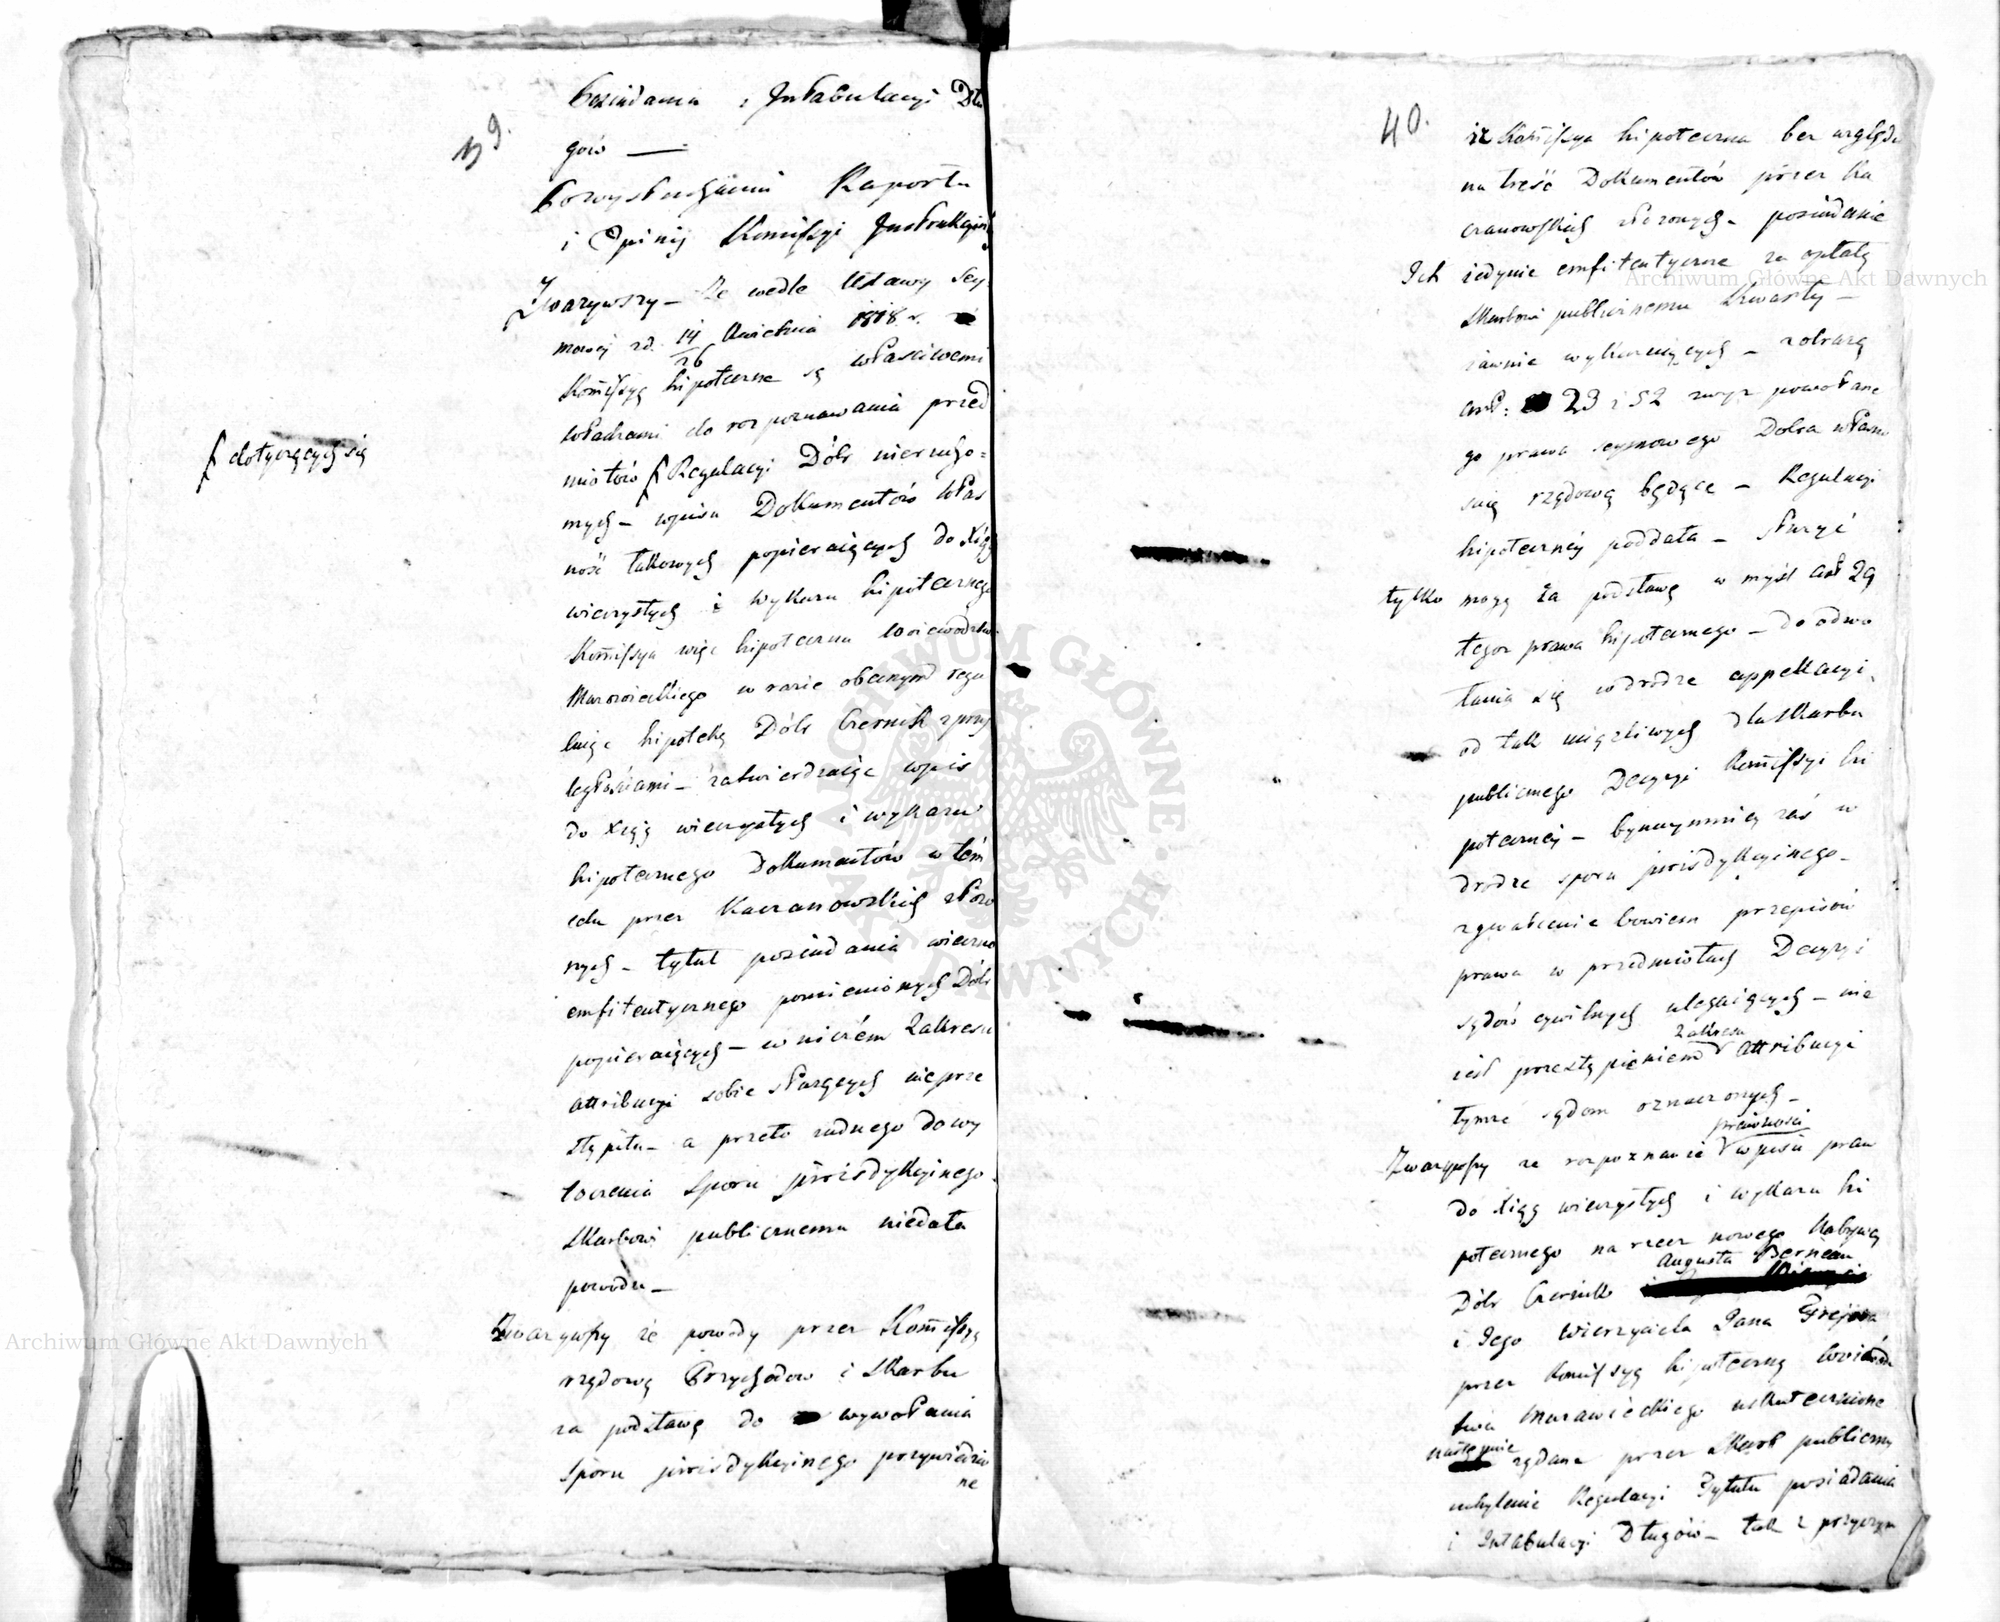 39.
Posiadania i Intabulacyi Dłu
gów —
Po wysłuchaniu Raportu
i Opinij Komissyi Instrukcyiney
Zważywszy – Że wedle Ustawy Sey
mowey z d. 14/26 Kwietnia 1818 r.
Komissye hipoteczne są właściwemi
władzami do rozpoznawania przed
miotów ſ Regulacyi Dóbr nierucho=
ſ dotyczących się
mych – wpisu Dokumentów włas
ność takowych popieraiących do Xiąg
wieczystych i wykazu hipotecznego
Komissya więc hipoteczna Woiewodztwa
Mazowieckiego w razie obecnym regu
luiąc hipotekę Dóbr Czernik z przy
ległościami – zatwierdzaiąc wpis
do Xiąg wieczystych i wykazu
hipotecznego Dokumentów w tém
celu przez Kaczanowskich złożo
nych – tytuł posiadania wieczno
emfiteutycznego pomienionych Dóbr
popieraiących – w niczém Zakresu
attribucyi sobie służących nieprze
stąpiła – a przeto żadnego do wy
toczenia Sporu jurisdykcyinego
Skarbowi publicznemu niedała
powodu –
Zważywszy że powody przez Komissyą
rządową Przychodow i Skarbu
za podstawę do wywołania
Sporu jurisdykcyinego przywiedzio
ne
40.
iż Komissya hipoteczna bez względu
na treść Dokumentów przez Ka
czanowskich złożonych – posiadanie
Ich iedynie emfiteutyczne za opłatą
Skarbowi publicznemu Kwarty –
iawnie wykazuiących – z obrazą
art: 23 i 52 wyż powołane
go prawa seymowego Dobra włas
nością rządową będące – Regulacyi
hipoteczney poddała – służyć
tylko mogą za podstawę w myśl art 29
tegoż prawa hipotecznego – do odwo
łania się w drodze appellacyi
od tak uciążliwych dla Skarbu
publicznego Decyzyi Komissyi hi
poteczney – bynaymniey zaś w
drodze sporu jurisdykcyinego –
zgwałcenie bowiem przepisów
prawa w przedmiotach Decyzyi
sądów cywilnych ulegaiących – nie
iest przestąpieniem Zakresu attribucyi
tymże sądom oznaczonych –
Zważywszy że rozpoznanie prawności wpisu praw
do Xiąg wieczystych i wykazu hi
potecznego na rzecz nowego Nabywcy
Dóbr Czernik Augusta Berneau
i Jego Wierzyciela Jana
przez Komissyą hipoteczną Woiewódz
twa Mazowieckiego uskutecznione
następnie żądane przez Skarb publiczny
uchylenie Regulacyi Tytułu posiadania
i Intabulacyi Długów – tak z przyczyn
Archiwum Główne Akt Dawnych
Archiwum Główne Akt Dawnych
ARCHIWUM GŁÓWNE AKT DAWNYCH